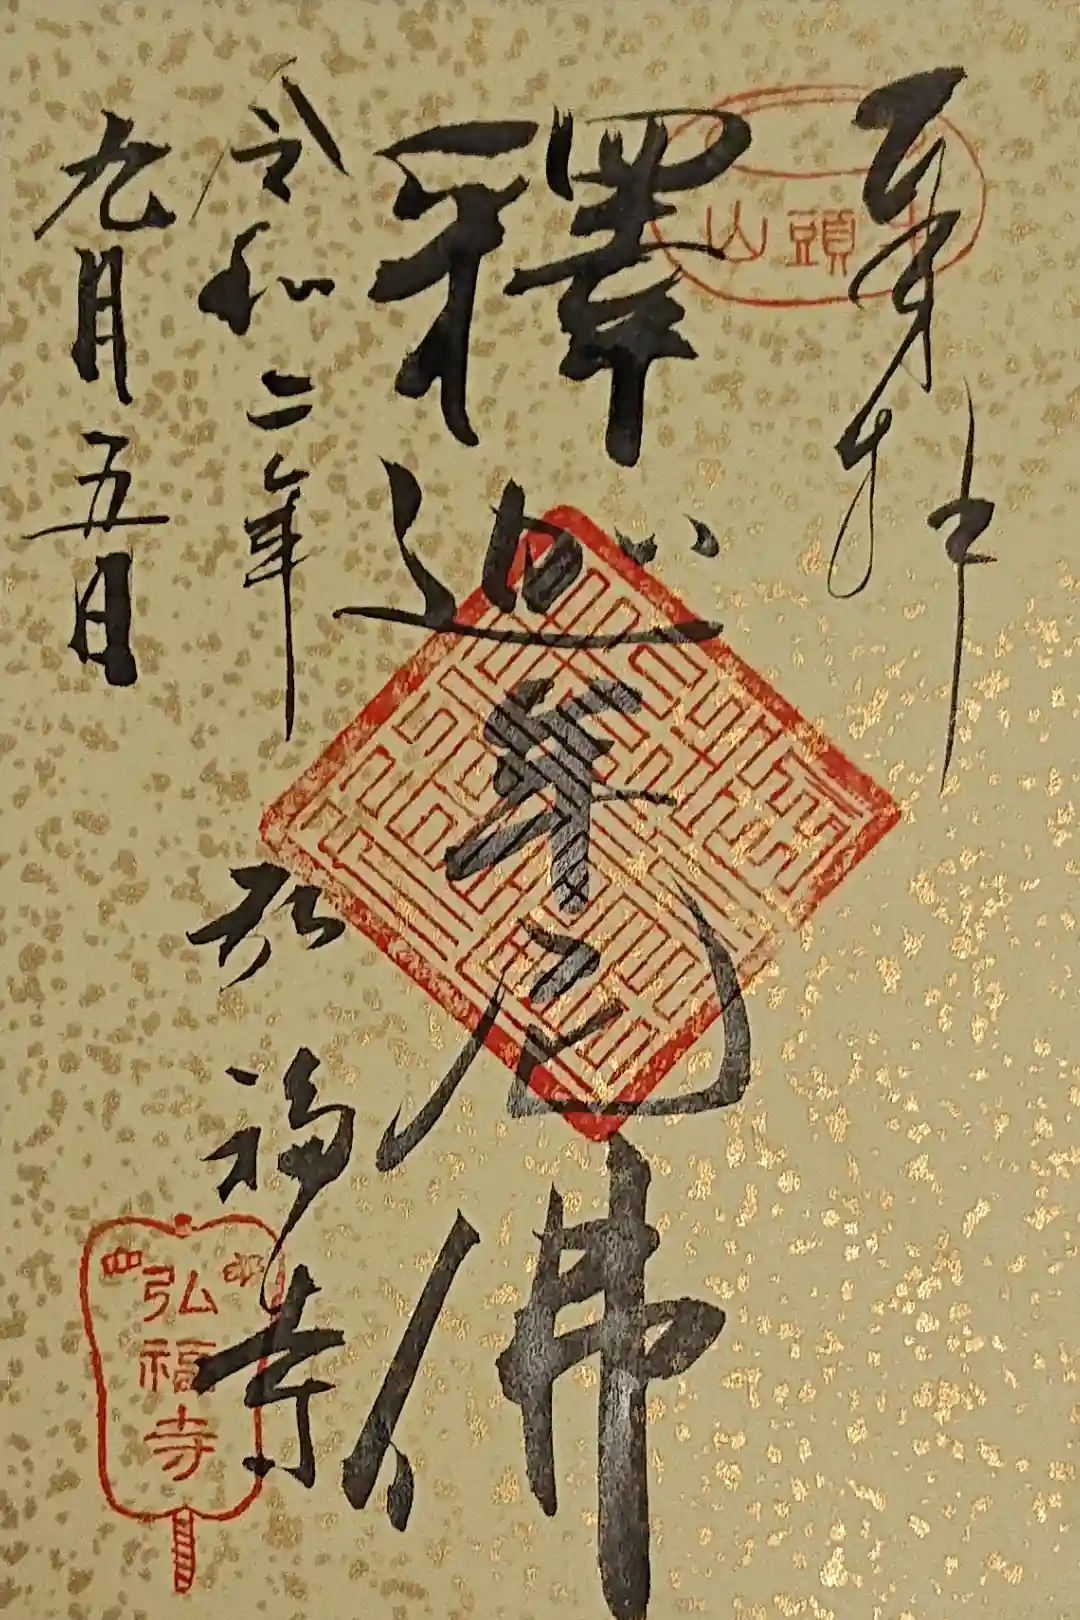 奉拝
牛頭山
釋迦牟尼佛
令和二年
九月五日
弘福寺
弘福寺